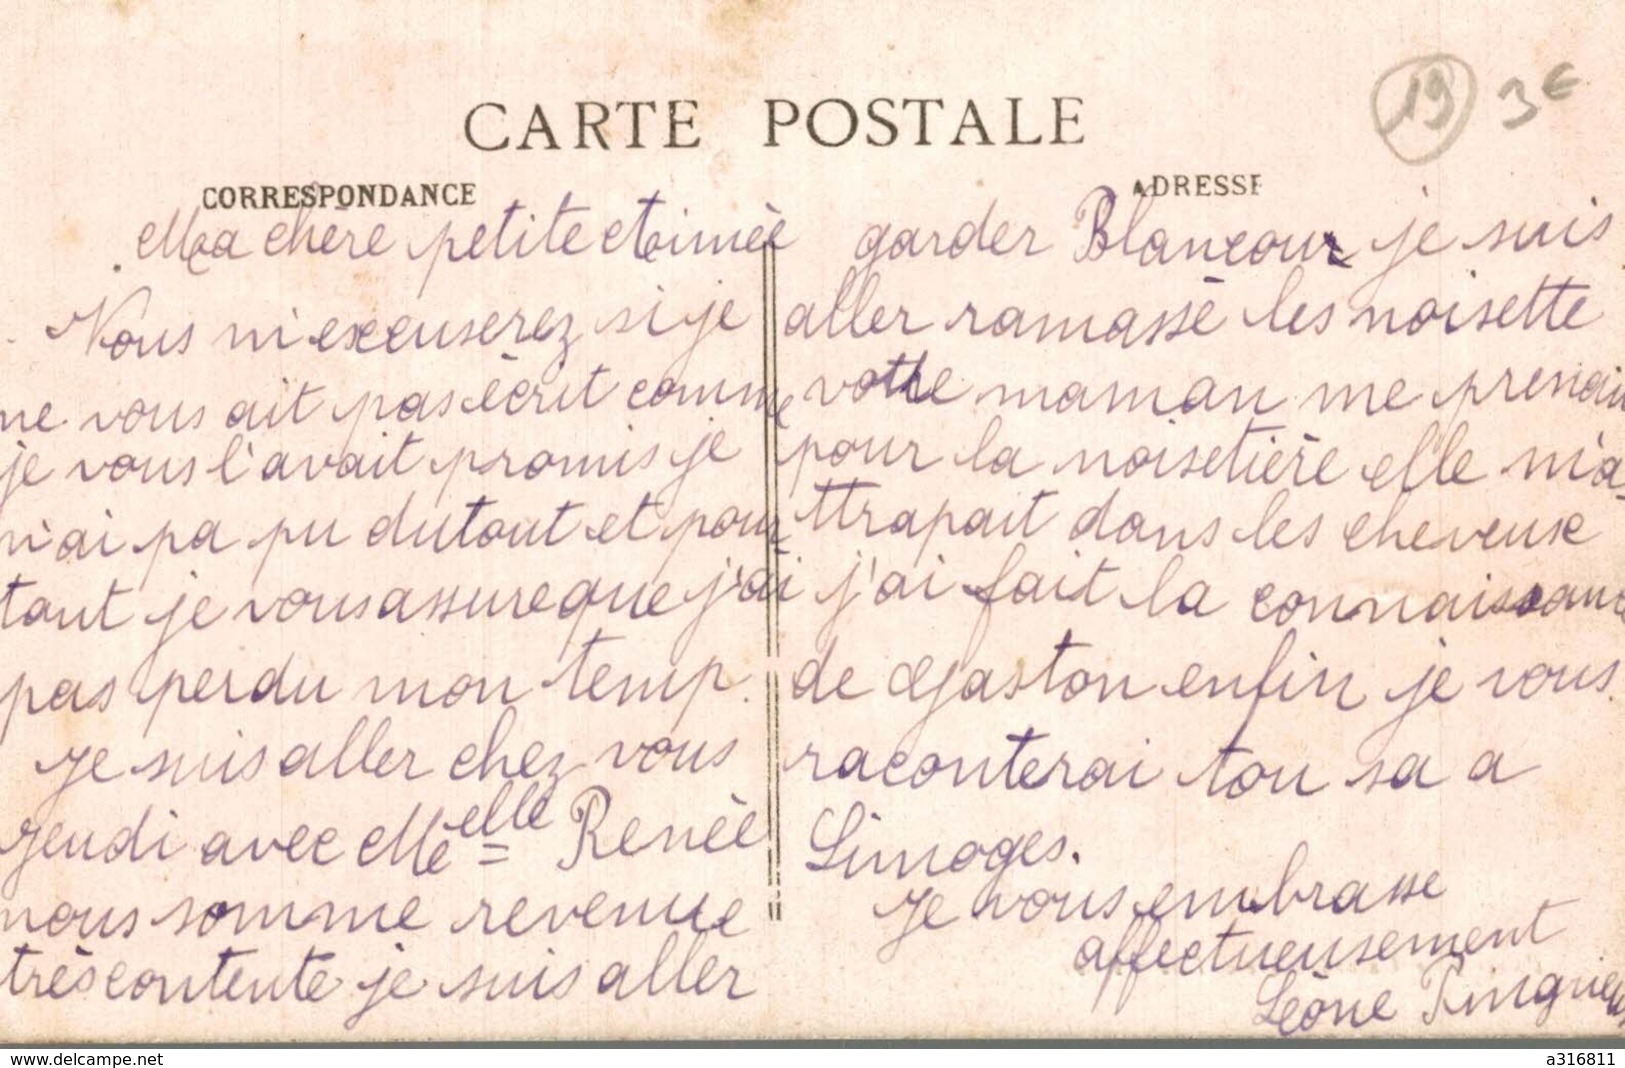 19 3€
CARTE POSTALE
CORRESPONDANCE
Ma chère petite Aimèe
Vous m'excuserez si je
ne vous ait pas ècrit comme
je vous l'avait promis je
n'ai pa pu du tout et pour
tant je vous assure que j'ai
pas perdu mon temp.
Je suis aller chez vous
jeudi avec Melle Renèe
nous somme revenue
très contente je suis aller
ADRESSE
garder Blancour je suis
aller ramassè les noisette
votre maman me prenai
pour la noisetière elle m'a-
ttrapait dans les cheveux
j'ai fait la connaissance
de Gaston enfin je vous
raconterai tou sa a
Limoges.
Je vous embrasse
affectueusement
Lèone
www.delcampe.net
a316811